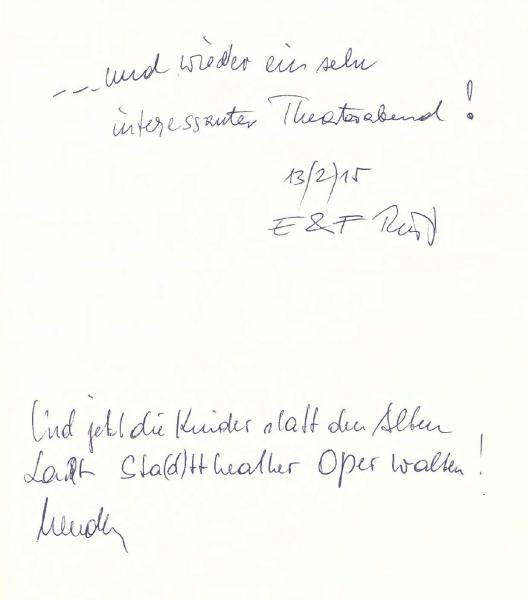 --- und wieder ein sehr
interessanter Theaterabend!
13/2/15
E & F
Und jetzt die Kinder statt den Alten
Sta(d)ttheather Oper walten!